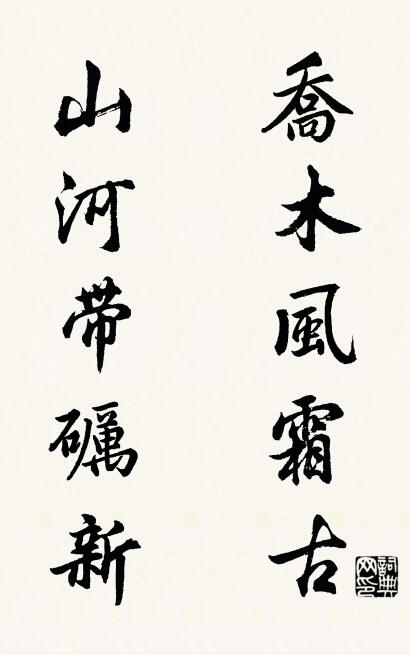 喬木風霜古
山河帶礪新
詞典網印